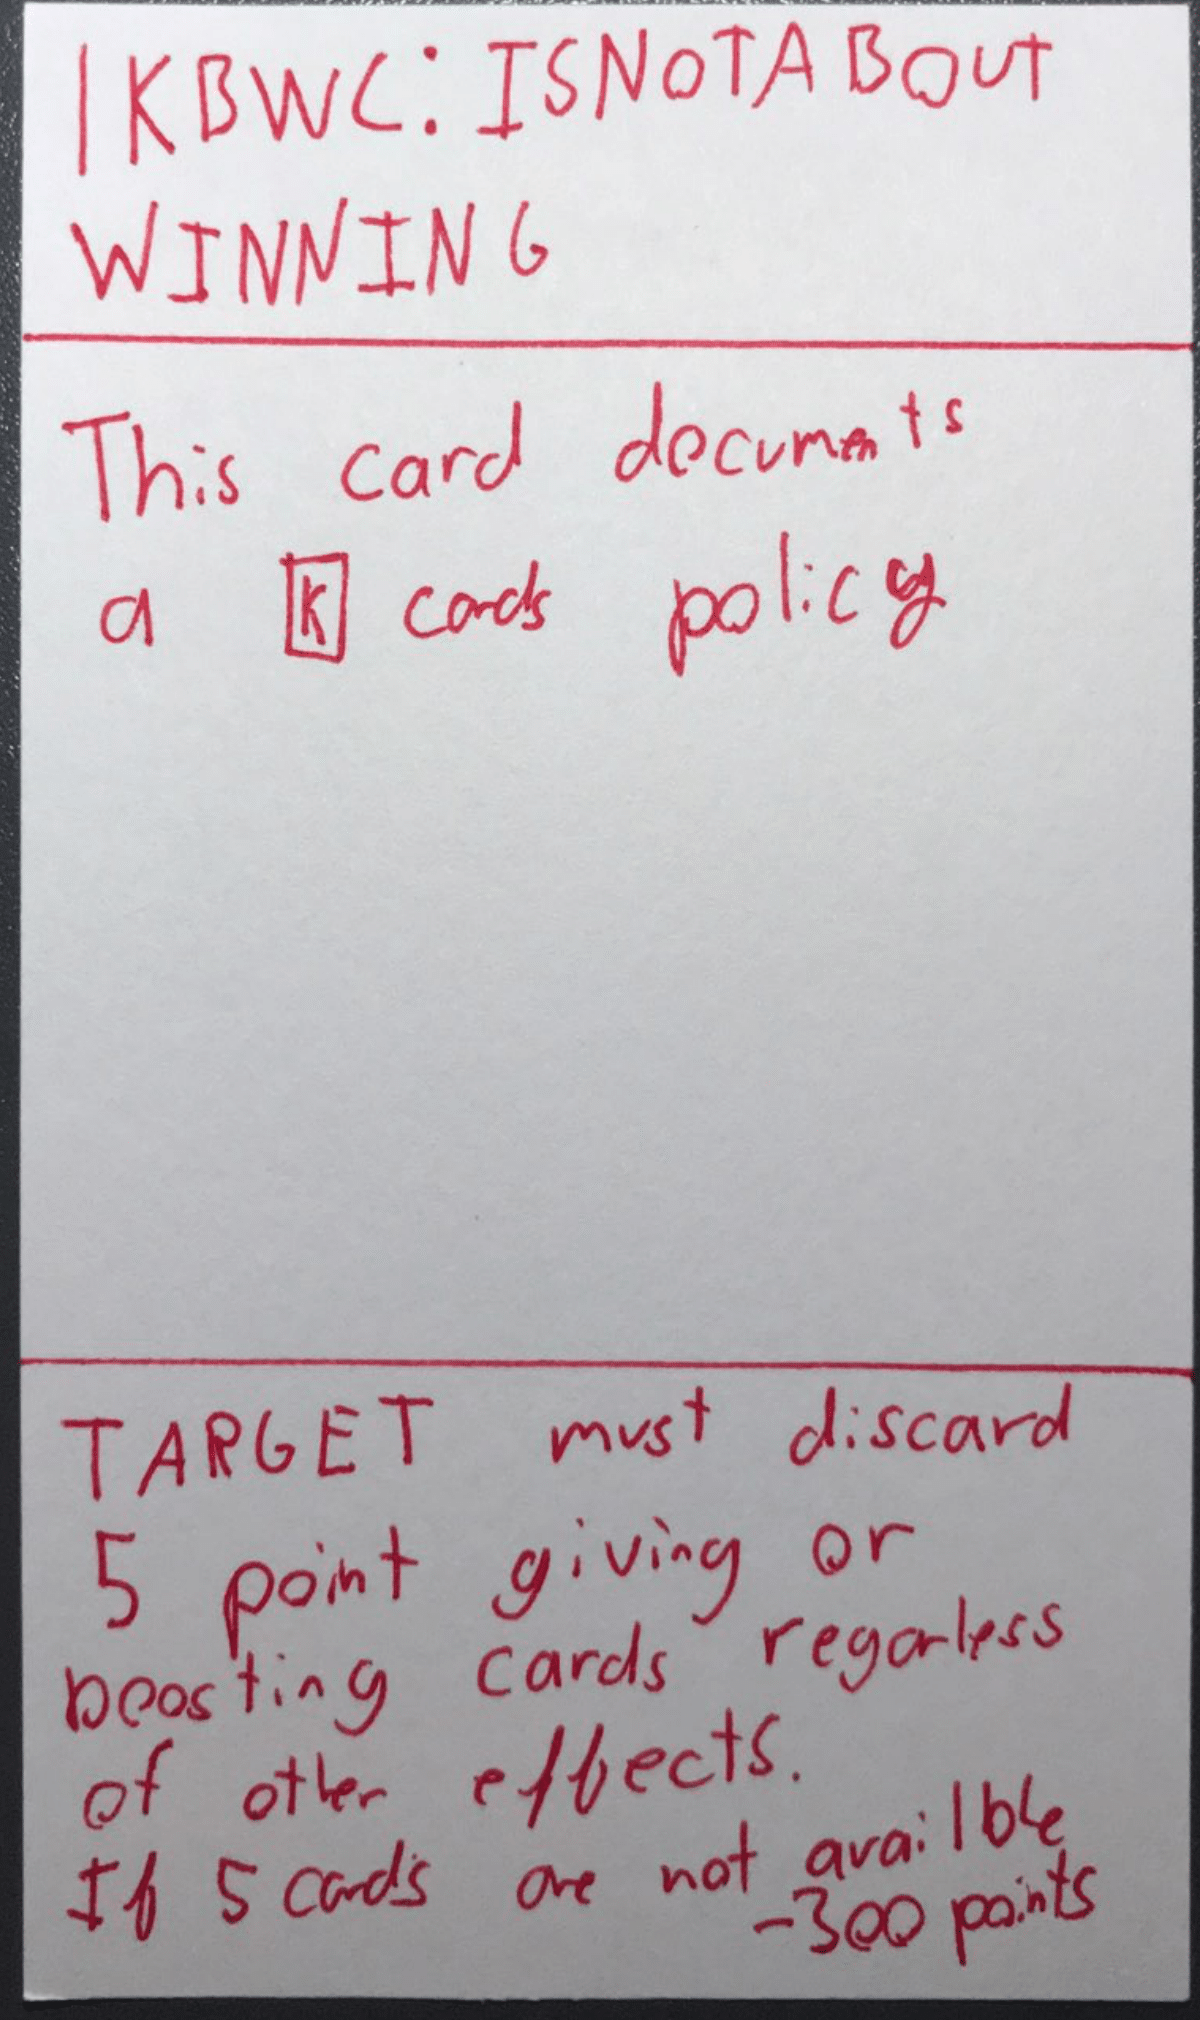 1KBWC: ISNOTABOUT
WINNING
This card documents
a K cards policy
TARGET must discard
5 point giving or
boosting cards regarless
of other effects.
If 5 cards are not availble
-300 points